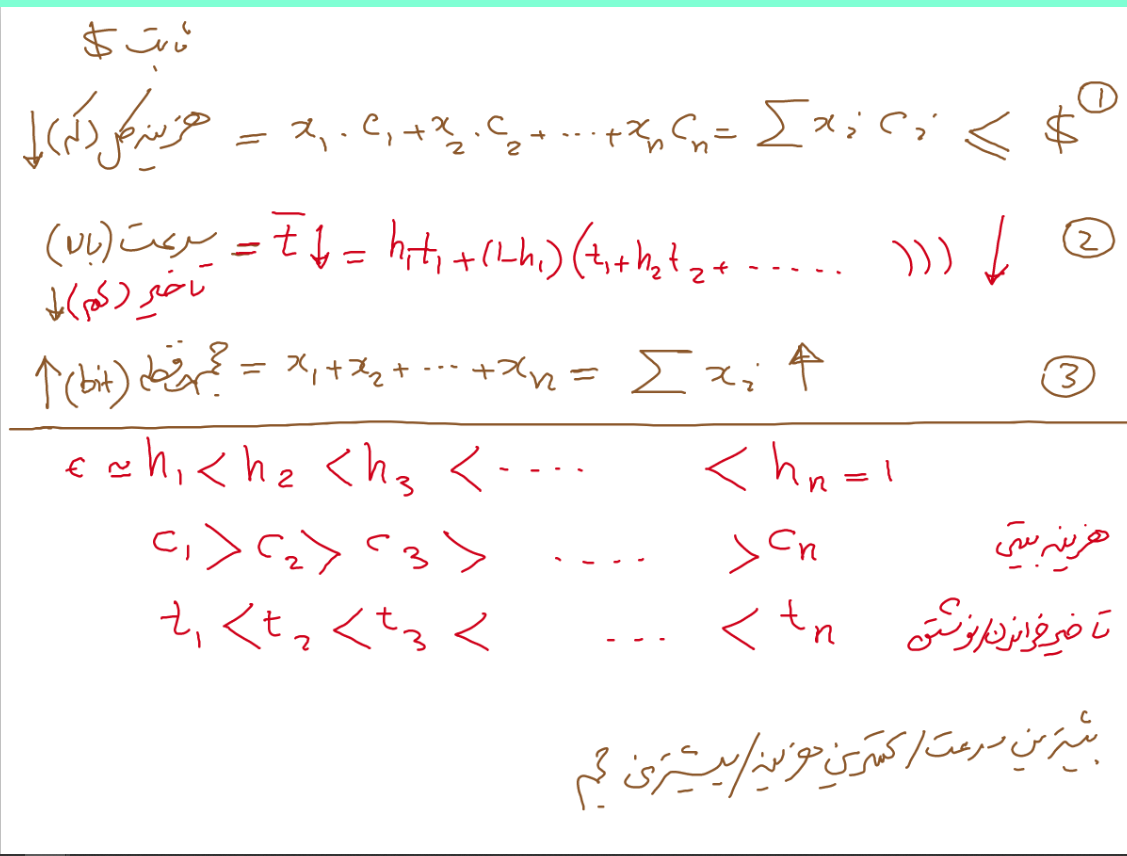 ثابت $
↓ هزینه کل (کم) = x₁ · c₁ + x₂ · c₂ + ... + xₙ cₙ = ∑ xᵢ cᵢ ≤ $ ①
سرعت (بالا) = t̄ ↓ = h₁t₁ + (1-h₁)(t₁ + h₂t₂ + ..... ))) ↓ ②
↓ تاخیر (کم)
↑ (bit) حجم فقط = x₁ + x₂ + ... + xₙ = ∑ xᵢ ↑ ③
ϵ ≃ h₁ < h₂ < h₃ < .... < hₙ = 1
c₁ > c₂ > c₃ > .... > cₙ هزینه بیتی
t₁ < t₂ < t₃ < ... < tₙ تاخیر خواندن/نوشتن
بیشترین سرعت / کمترین هزینه / بیشترین حجم